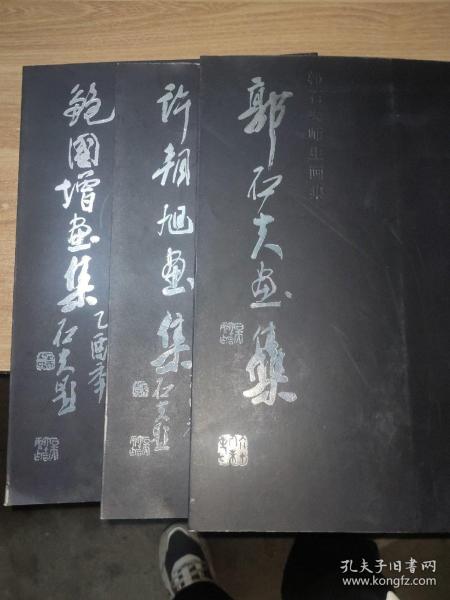 鲍國增畫集
乙酉年
石夫題
许朝旭畫集
石夫題
郭石夫畫集
郭石夫师生画集
孔夫子旧书网
www.kongfz.com